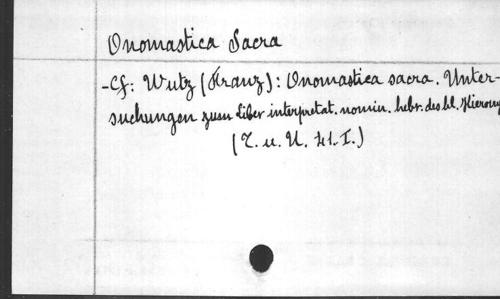 Onomastica Sacra
-Cf: Wutz (Franz): Onomastica sacra. Unter-
suchungen zum Liber interpretat. nomin. hebr. des hl. Hierony
(T. u. U. 41. I.)